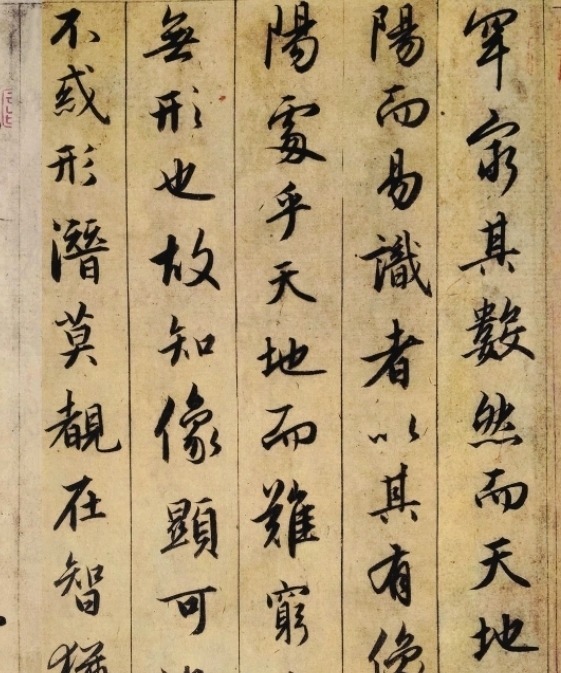 罕窮其數然而天地
陽而易識者以其有像
陽處乎天地而難窮
無形也故知像顯可
不惑形潛莫覩在智猶